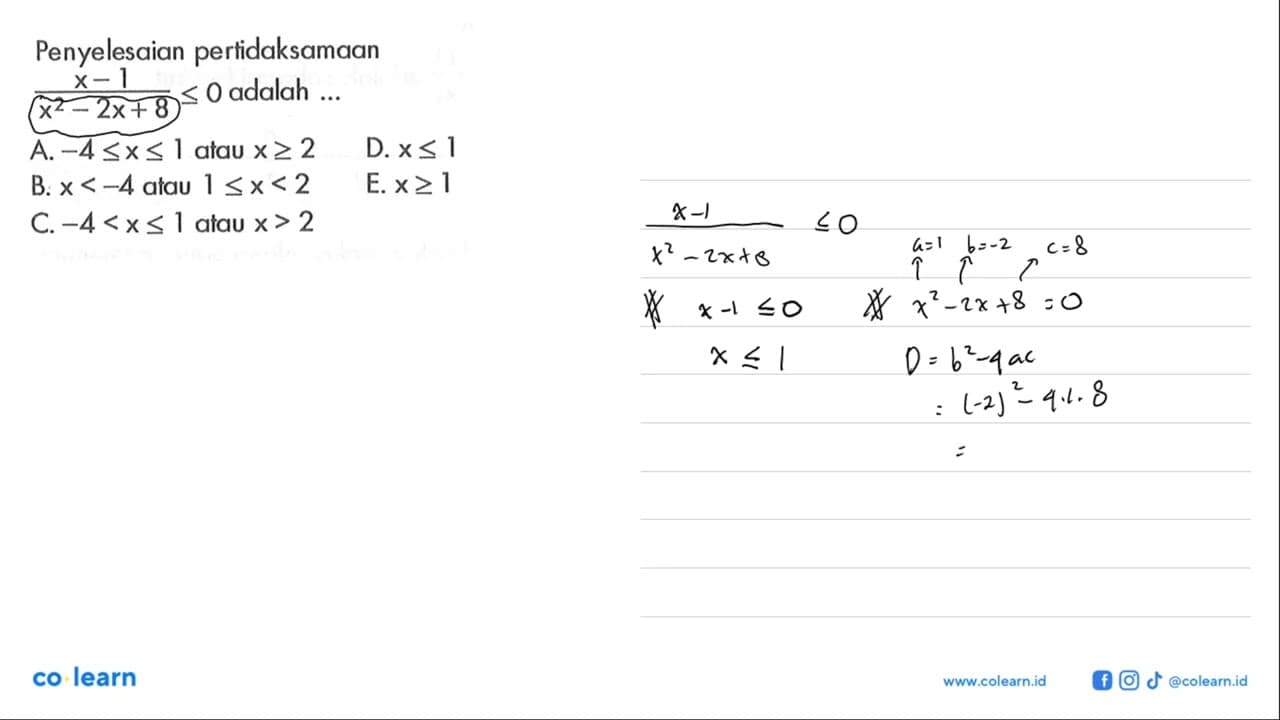 Penyelesaian pertidaksamaan
x – 1
x² – 2x + 8
≤ 0 adalah ...
A. –4 ≤ x ≤ 1 atau x ≥ 2
D. x ≤ 1
B. x < –4 atau 1 ≤ x < 2
E. x ≥ 1
C. –4 < x ≤ 1 atau x > 2
x-1
x² - 2x+8
≤ 0
a=1 b=-2 c=8
x-1 ≤ 0
x² -2x +8 = 0
x ≤ 1
D = b² - 4ac
= (-2)² - 4.1.8
=
co learn
www.colearn.id
@colearn.id